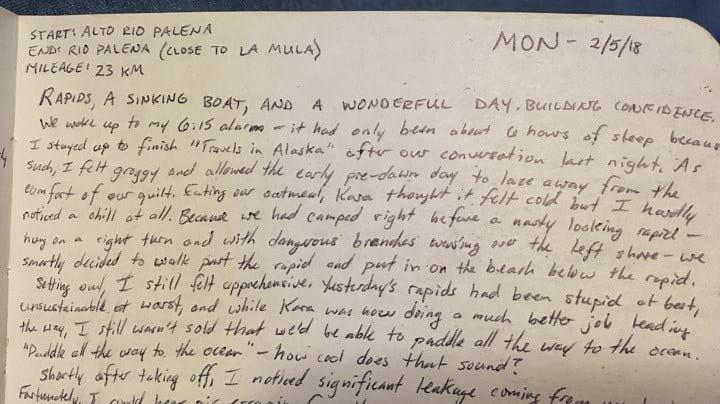 START: ALTO RIO PALENA
END: RIO PALENA (CLOSE TO LA MULA)
MILEAGE: 23 KM
MON - 2/5/18
RAPIDS, A SINKING BOAT, AND A WONDERFUL DAY. BUILDING CONFIDENCE.
We woke up to my 6:15 alarm - it had only been about 6 hours of sleep because
I stayed up to finish "Travels in Alaska" after our conversation last night. As
such, I felt groggy and allowed the early pre-dawn day to laze away from the
comfort of our quilt. Eating our oatmeal, Kara thought it felt cold but I hardly
noticed a chill at all. Because we had camped right before a nasty looking rapid -
hung on a right turn and with dangerous branches over the left shore - we
smartly decided to walk past the rapid and put in on the beach below the rapid.
Setting out, I still felt apprehensive. Yesterday's rapids had been stupid at best,
unsustainable at worst, and while Kara was now doing a much better job leading
the way, I still wasn't sold that we'd be able to paddle all the way to the ocean.
"Paddle all the way to the ocean" - how cool does that sound?
Shortly after taking off, I noticed significant leakage coming from
Fortunately, I could hear air